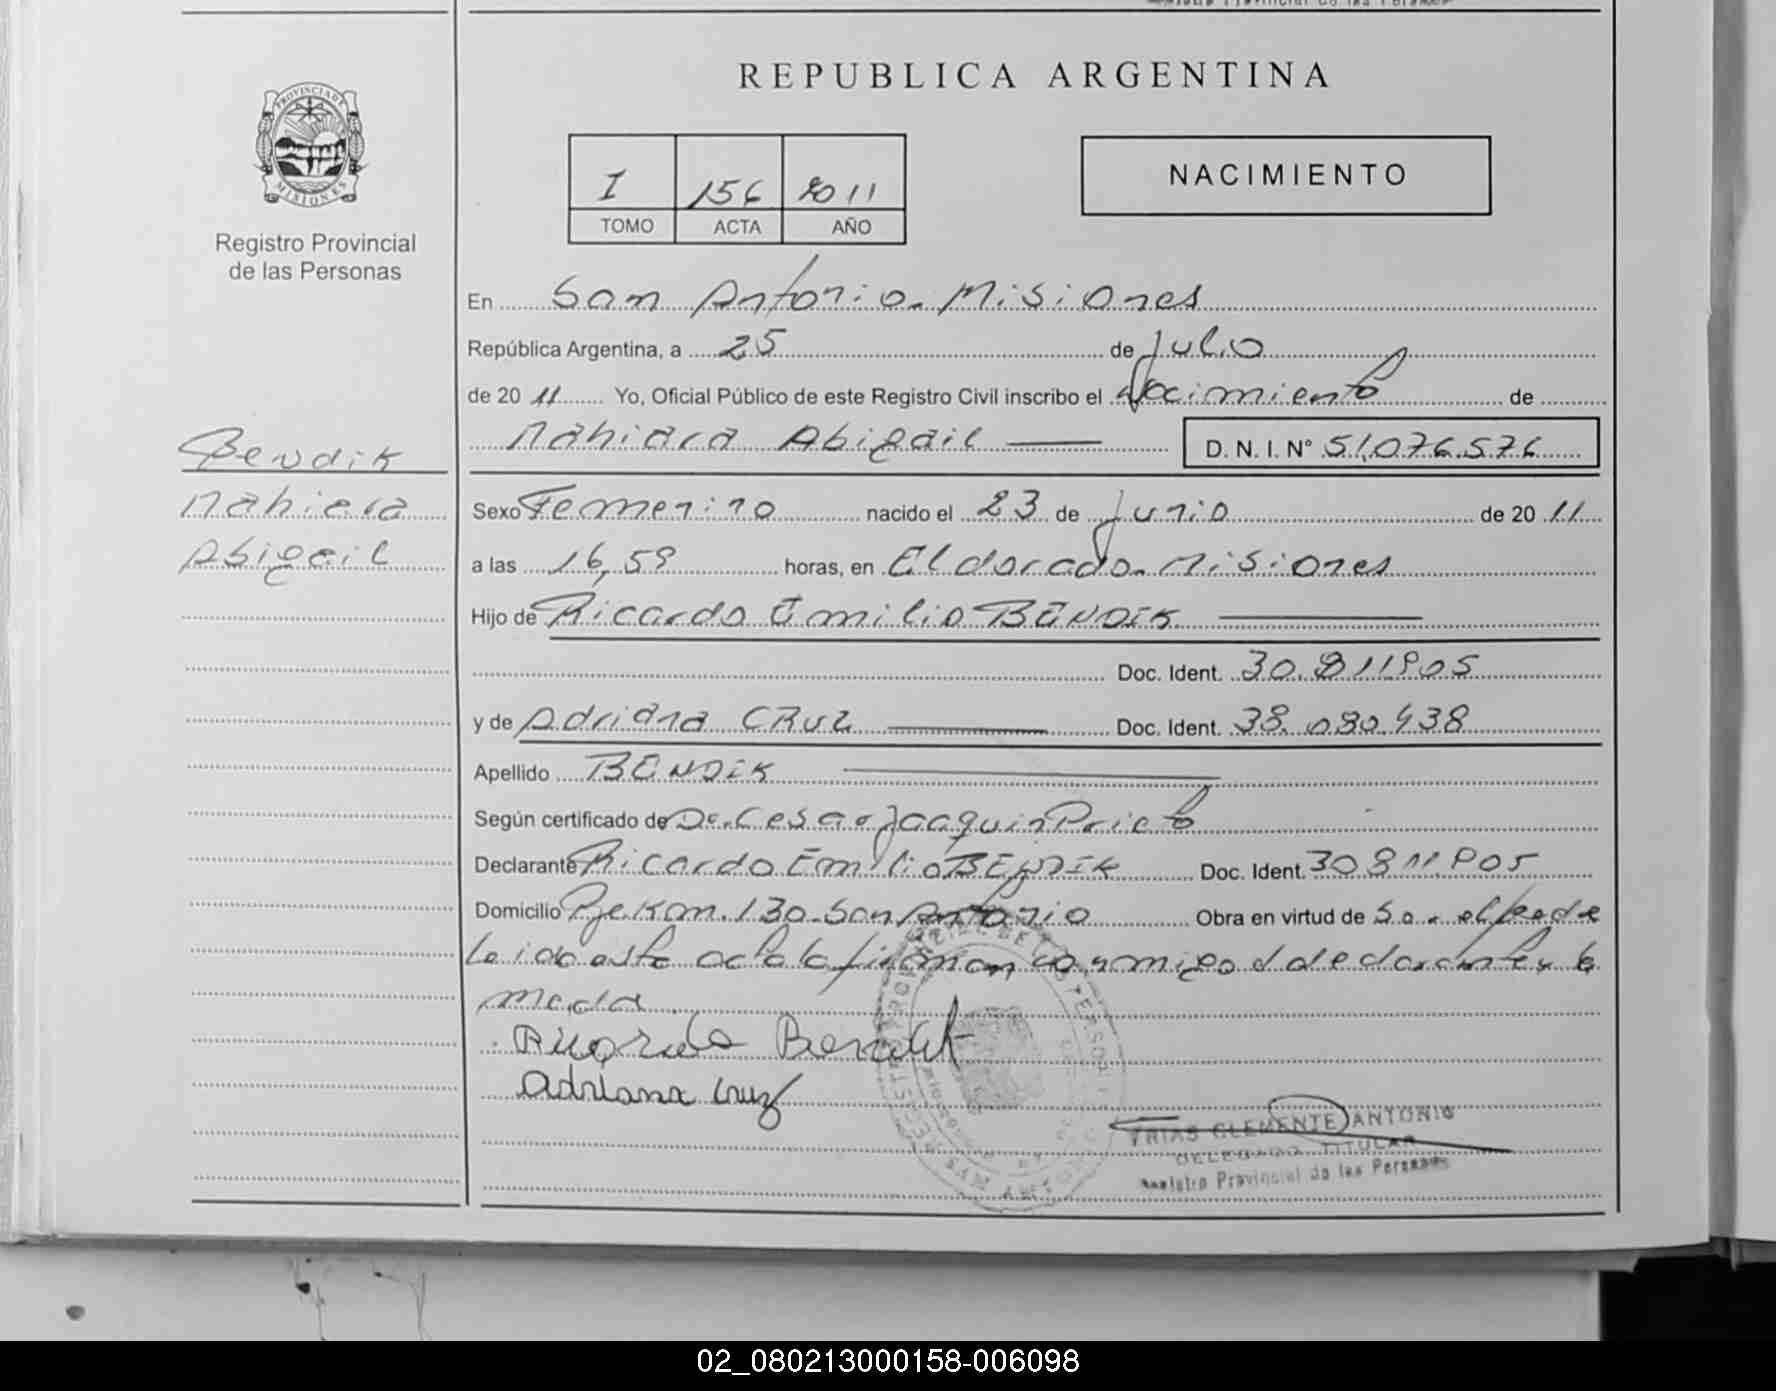 REPUBLICA ARGENTINA
PROVINCIA DE
MISIONES
Registro Provincial
de las Personas
I 156 2011
TOMO ACTA AÑO
NACIMIENTO
En San Antonio. Misiones
República Argentina, a 25 de Julio
de 20 11 Yo, Oficial Público de este Registro Civil inscribo el Nacimiento de
Nahiara Abigail D. N. I. N° 51.076.576
Bendik
Nahiara
Abigail
Sexo Femenino nacido el 23 de Junio de 20 11
a las 16,59 horas, en Eldorado. Misiones
Hijo de Ricardo Emilio BENDIK
Doc. Ident. 30.811.905
y de Adriana CRUZ Doc. Ident. 38.080.438
Apellido BENDIK
Según certificado de Dr. Cesar Joaquin Prieto
Declarante Ricardo Emilio BENDIK Doc. Ident. 30 811.905
Domicilio Pje. Km. 130. San Antonio Obra en virtud de
Leida esta acta la firman conmigo el declarante y la
madre
Ricardo Bendik
Adriana Cruz
FRIAS CLEMENTE ANTONIO
DELEGADO TITULAR
Registro Provincial de las Personas
02_080213000158-006098